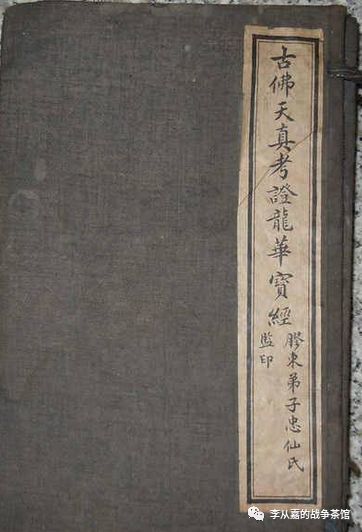 古佛天真考證龍華寶經
膠東弟子忠仙氏
監印
李从嘉的战争茶馆